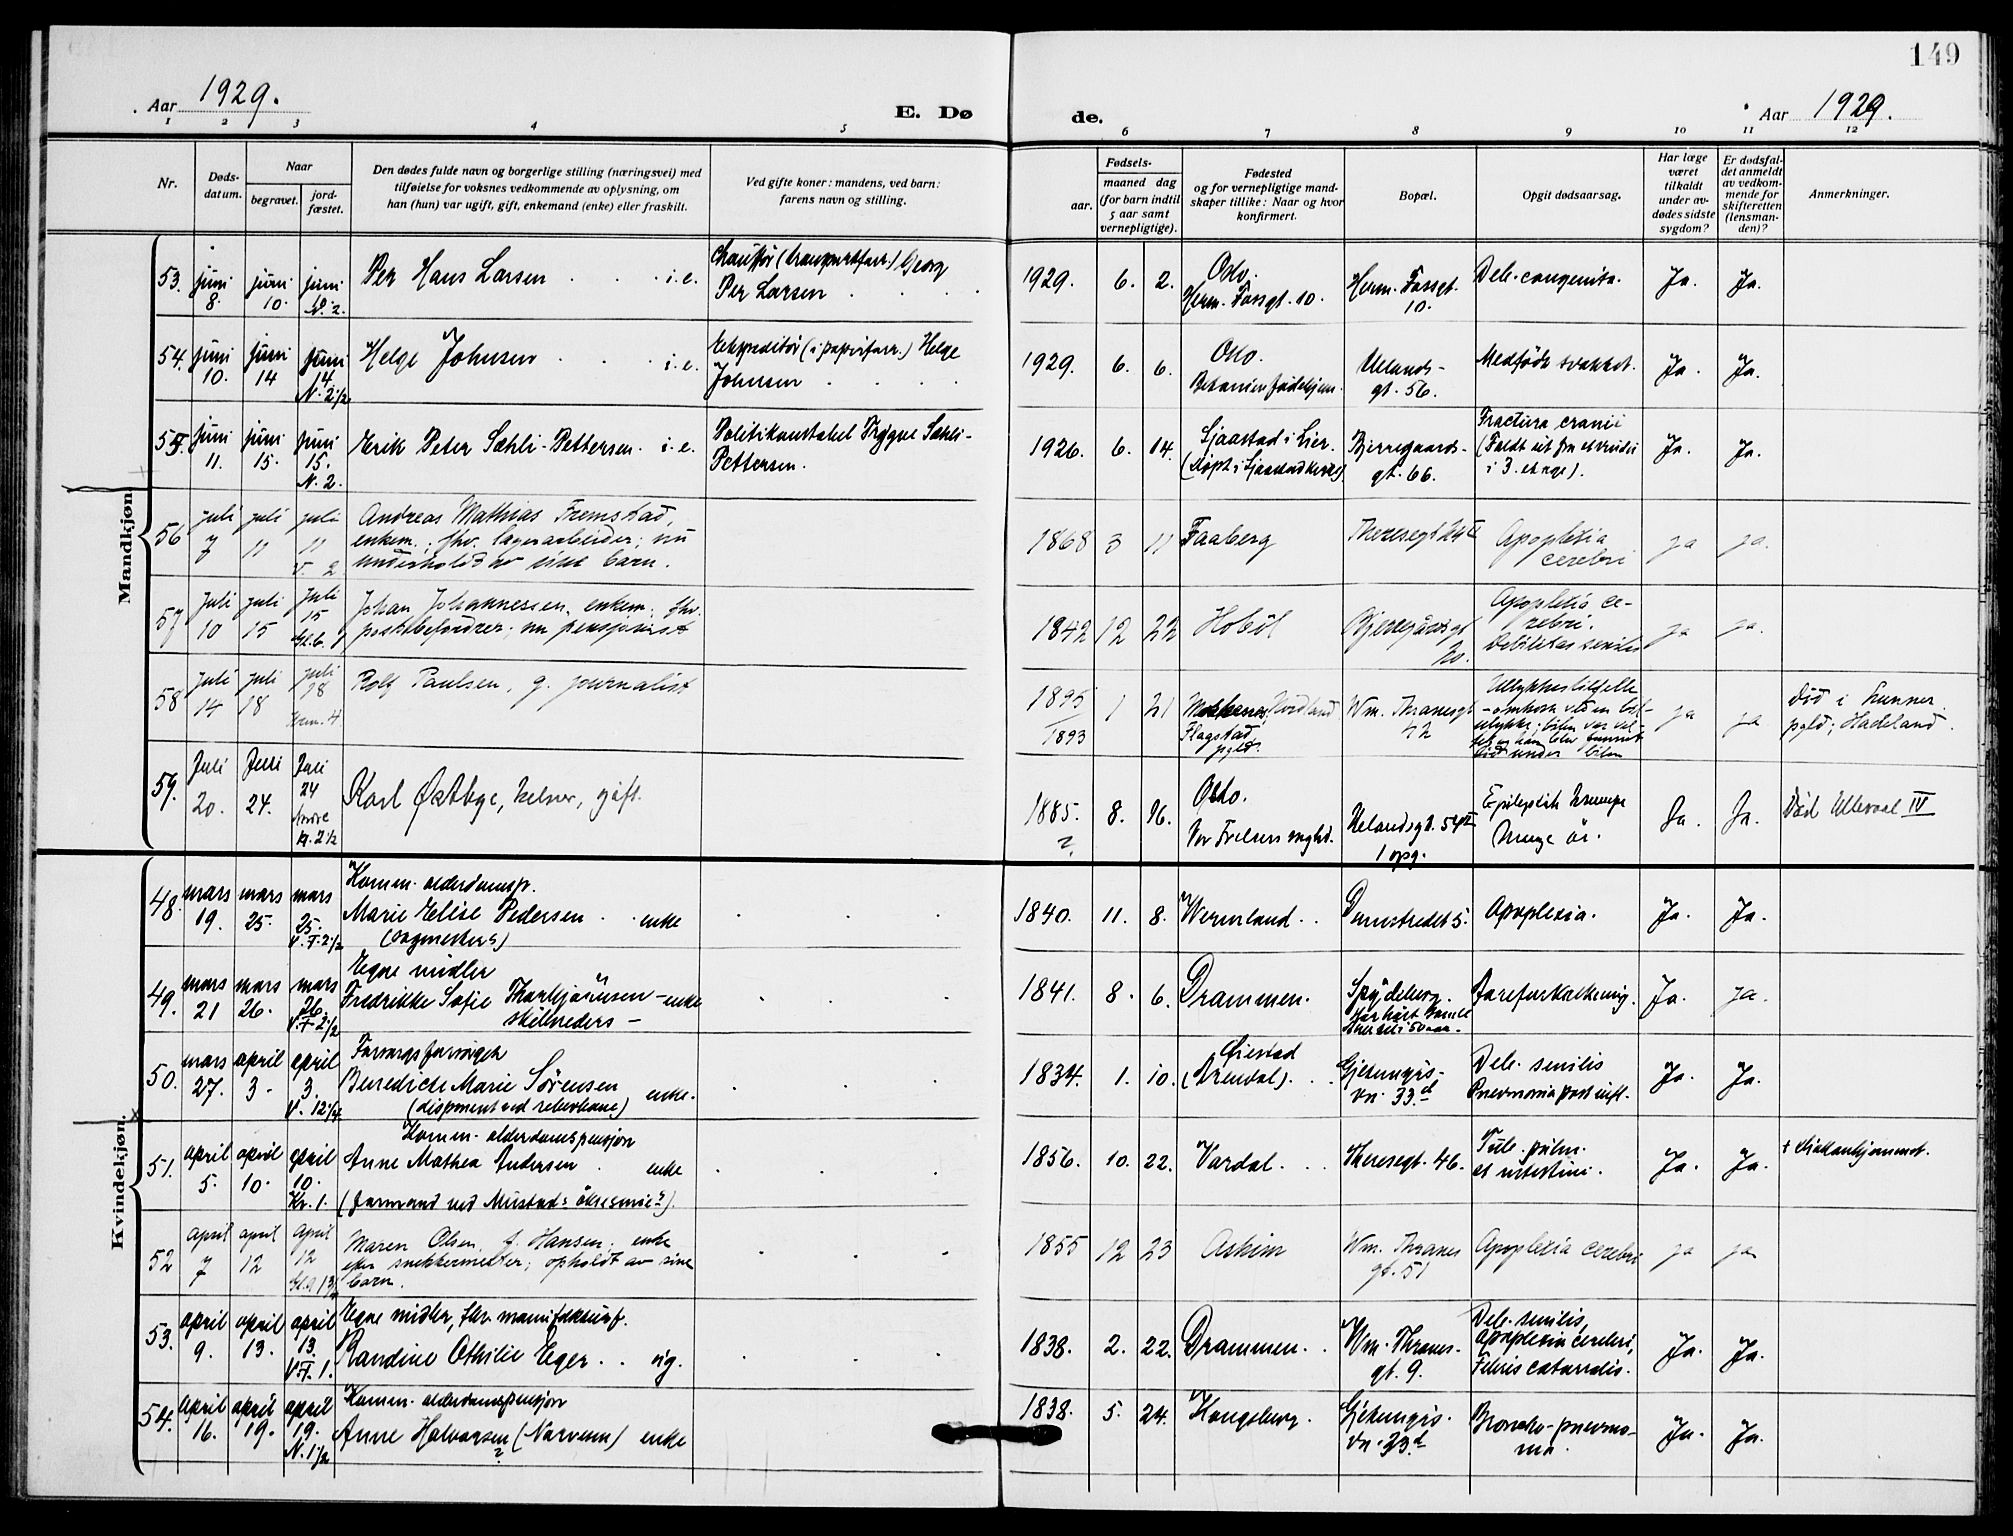 149
Aar 1929.
E. Dø
de.
Aar 1929.
1 2 3 4 5 6 7 8 9 10 11 12
Nr.
Døds-
datum.
Naar
begravet.
jord-
fæstet.
Den dødes fulde navn og borgerlige stilling (næringsvei) med
tilføielse for voksnes vedkommende av oplysning, om
han (hun) var ugift, gift, enkemand (enke) eller fraskilt.
Ved gifte koner: mandens, ved barn:
farens navn og stilling.
Fødsels-
aar.
maaned dag
(for barn indtil
5 aar samt
vernepligtige).
Fødested
og for vernepligtige mand-
skaper tillike: Naar og hvor
konfirmert.
Bopæl.
Opgit dødsaarsag.
Har læge
været
tilkaldt
under av-
dødes sidste
sygdom?
Er dødsfal-
det anmeldt
av vedkom-
mende for
skifteretten
(lensman-
den)?
Anmerkninger.
Mandkjøn
53. juni 8. juni 10. juni
Per Hans Larsen . . . i.e.
Georg
Per Larsen
1929. 6. 2.
Herm. Fossgt. 10.
Herm. Fossgt.
10.
Deb. congenita.
Ja. Ja.
54. juni 10. juni 14 juni 14 N. 2 1/2
Helge Johnsen . . . i.e.
Helge
Johnsen
1929. 6. 6.
Oslo.
Uelands-
gt. 56.
Medfödt svakhet.
Ja. Ja.
55. juni 11. juni 15. juni 15. N. 2.
Erik Peter Sæhli-Pettersen. i.e.
Politikonstabel Trygve Sæhli-
Pettersen.
1926. 6. 14.
Sjaastad i Lier.
(Døpt i Sjaastad kirke)
Bjerregaards-
gt. 66.
Fractura cranii
(Faldt ut fra et vindu
i 3. etage).
Ja. Ja.
56 juli 7 juli 11 juli 11 V. 2
Andreas Mathias Fremstad,
enkem.; fhv. lagerarbeider; nu
underholdt av sine barn.
1868 3 11
Faaberg
Theresegt
Apoplexia
cerebri
ja ja.
57 juli 10 juli 15 juli 15
Johan Johannessen, enkem. fhv.
postbefordrer; nu pensjonist
1842 12 22
Hobøl
Bjerregårdsgt
Apoplexia ce-
rebri.
Debilitas senilis
ja ja.
58 juli 14 juli 18 juli 18
Rolf Paulsen, g. journalist
1895
1893
1 21
Nordland
Flagstad
pgld.
Wm. Thranesgt
42
Ulykkestilfelle
- omkom ved en bil-
ulykke; bilen var vel-
tet og han blev funnet
död under bilen
ja ja
Död i Lunner
pgld, Hadeland.
59. Juli 20. Juli 24. Juli 24 kl. 2 1/2
Karl Østbye, kelner, gift.
1885. 8. 16.
?
Oslo.
Vor Frelsers mghd.
Uelandsgt. 54 II
1 opg.
Epileptisk krampe
Mange år.
Ja. Ja.
Död Ullevaal IV
Kvindekjøn.
48. mars 19. mars 25. mars 25. V. F. 2 1/2
Komm. alderdomsp.
Marie Elise Pedersen . . enke
1840. 11. 8.
Wermland . .
Damstredet 5.
Apoplexia.
Ja. Ja.
49. mars 21 mars 26. mars 26. V. F. 2 1/2
Egne midler
Fredrikke Sofie Thorbjörnsen - enke
1841. 8. 6.
Drammen.
Spydeberg.
Areforkalkning.
Ja. ja.
50. mars 27. april 3. april 3. V. 12 1/4
Forsorgsforsörget
Benedicte Marie Sørensen
enke.
1834. 1. 10.
Øiestad
(Arendal). .
Gjetemyrs-
vn. 33 d
Deb. senilis
Pneumonia post infl.
Ja. Ja.
51. april 5. april 10. april 10. Kr. 1.
Komm. alderdomspensjon
Anne Mathea Andersen . enke
(formand ved Mustads öksesmie?).
1856. 10. 22.
Vardal. . .
Theresegt. 46.
Tub. pulm.
et intestini.
Ja. Ja.
52 april 7 april 12 april 12
Maren Olsen f. Hansen; enke
efter snekkermester; opholdt av sine
barn.
1855 12 23
Askim
Wm. Thranes
gt. 51
Apoplexia cerebri
ja ja
53. april 9. april 13. april 13. V. F. 1.
Egne midler, fhv. manufakturf.
Randine Othilie Eger. . ug.
1838. 2. 22.
Drammen. .
Wm. Thranes-
gt. 9.
Deb. senilis,
apoplexia cerebri,
Febris catarralis.
Ja. Ja.
54. april 16. april 19. april 19. N. 1 1/2
Komm. alderdomspensjon
Anne Halvorsen (Narverun) enke
?
1838. 5. 24.
Kongsberg.
Gjetemyrs-
vn. 33 d
Broncho-pneumo-
nia.
Ja. Ja.